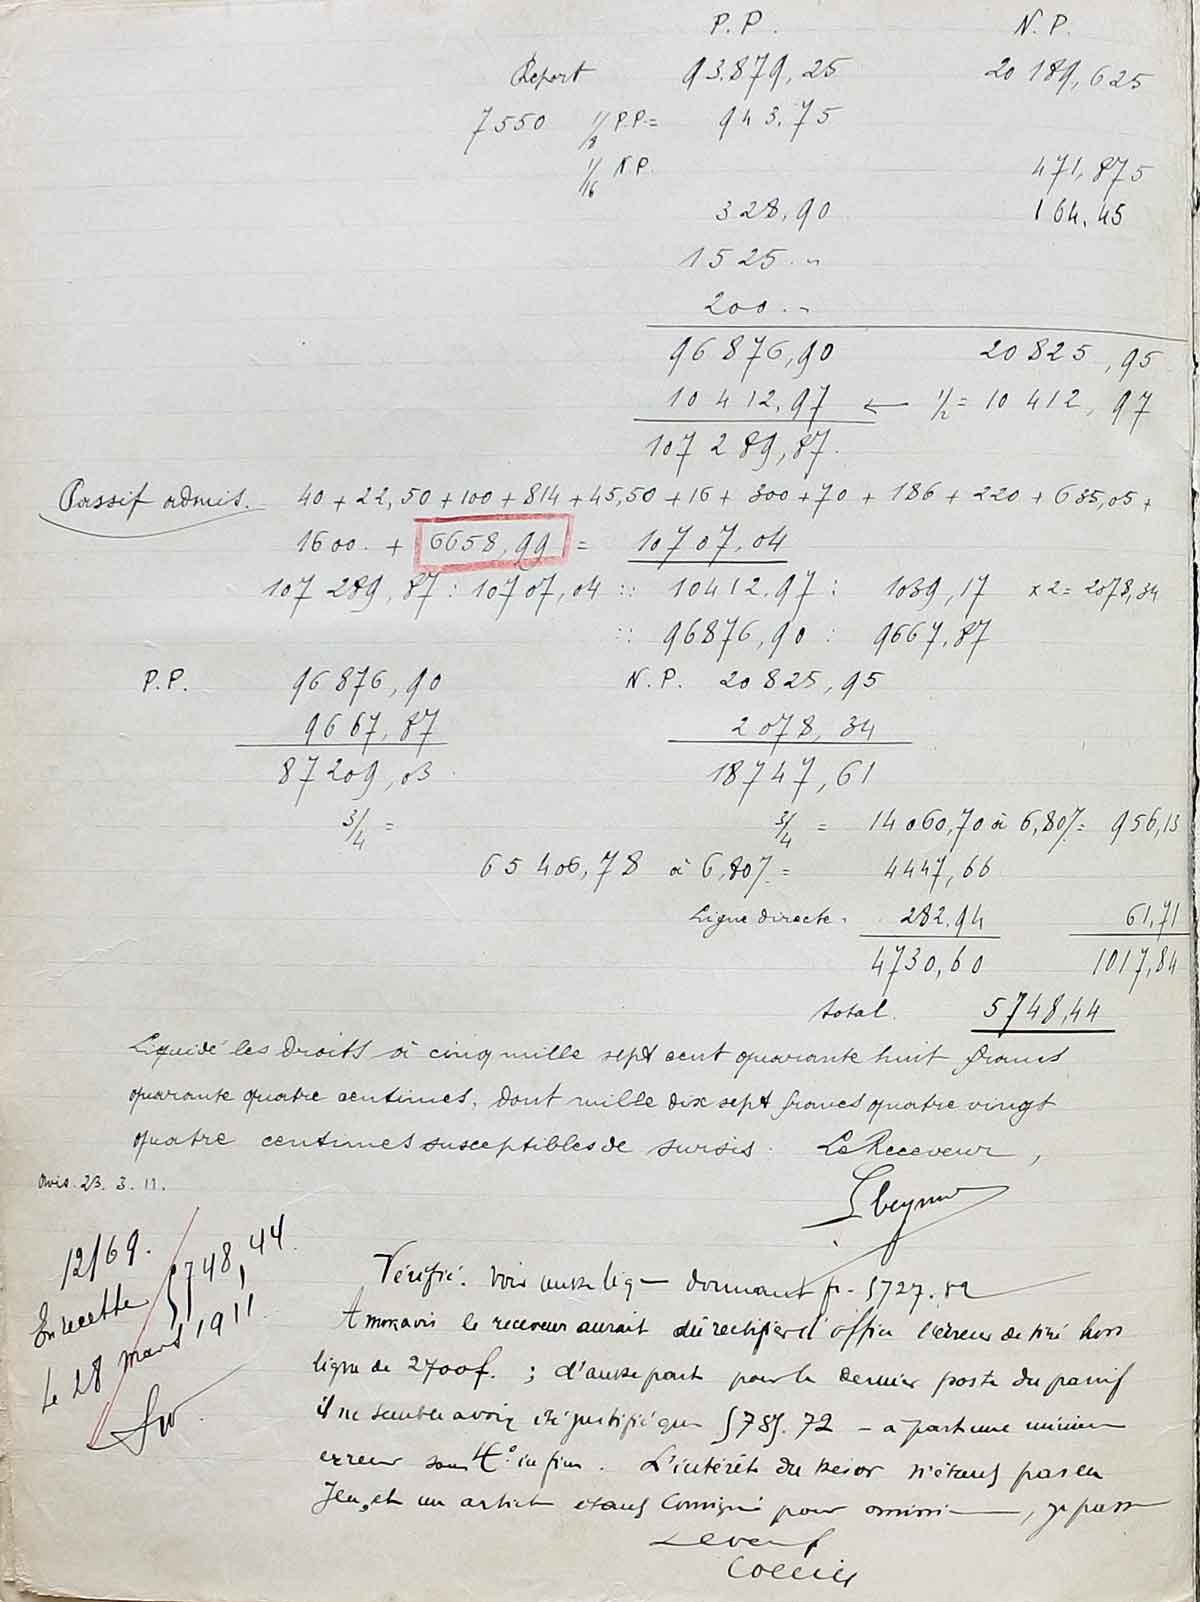 P.P. N.P.
Report 93.879,25 20189,625
7550 1/8 P.P.= 943.75
1/16 N.P. 471,875
328,90 164.45
1525..
200..
96876,90 20825,95
10412.97 ← 1/2 = 10412,97
107289,87.
Passif admis. 40+22,50+100+814+45,50+16+300+70+186+220+635,05+
1600. + 6658,99 = 10707.04
107289,87 : 10707,04 :: 10412.97 : 1039,17 x2=2078,34
:: 96876,90 : 9667,87
P.P. 96876,90 N.P. 20825,95
9667,87 2078,34
87209,03. 18747,61
3/4 = 3/4 = 14060,70 à 6,80%= 956,13
65406,78 à 6,80%= 4447,66
Ligne directe. 282.94 61,71
4730,60 1017,84
total. 5748,44
Liquidé les droits à cinq mille sept cent quarante huit francs
quarante quatre centimes, dont mille dix sept francs quatre vingt
quatre centimes susceptibles de sursis. Le Receveur,
Avis. 23.3.11.
12/69.
En recette 5748,44
le 28 mars 1911
Vérifié. Voir autre liq donnant fr. 5727.82
A mon avis le receveur aurait dû rectifier d'office l'erreur de tiré hors
ligne de 2700f. ; d'autre part pour le dernier poste du passif
il ne semble avoir été justifié que 5785.72 – à part une minime
erreur sous 4° in fine. L'intérêt du trésor n'étant pas en
jeu, et un article étant consigné pour omission, je passe